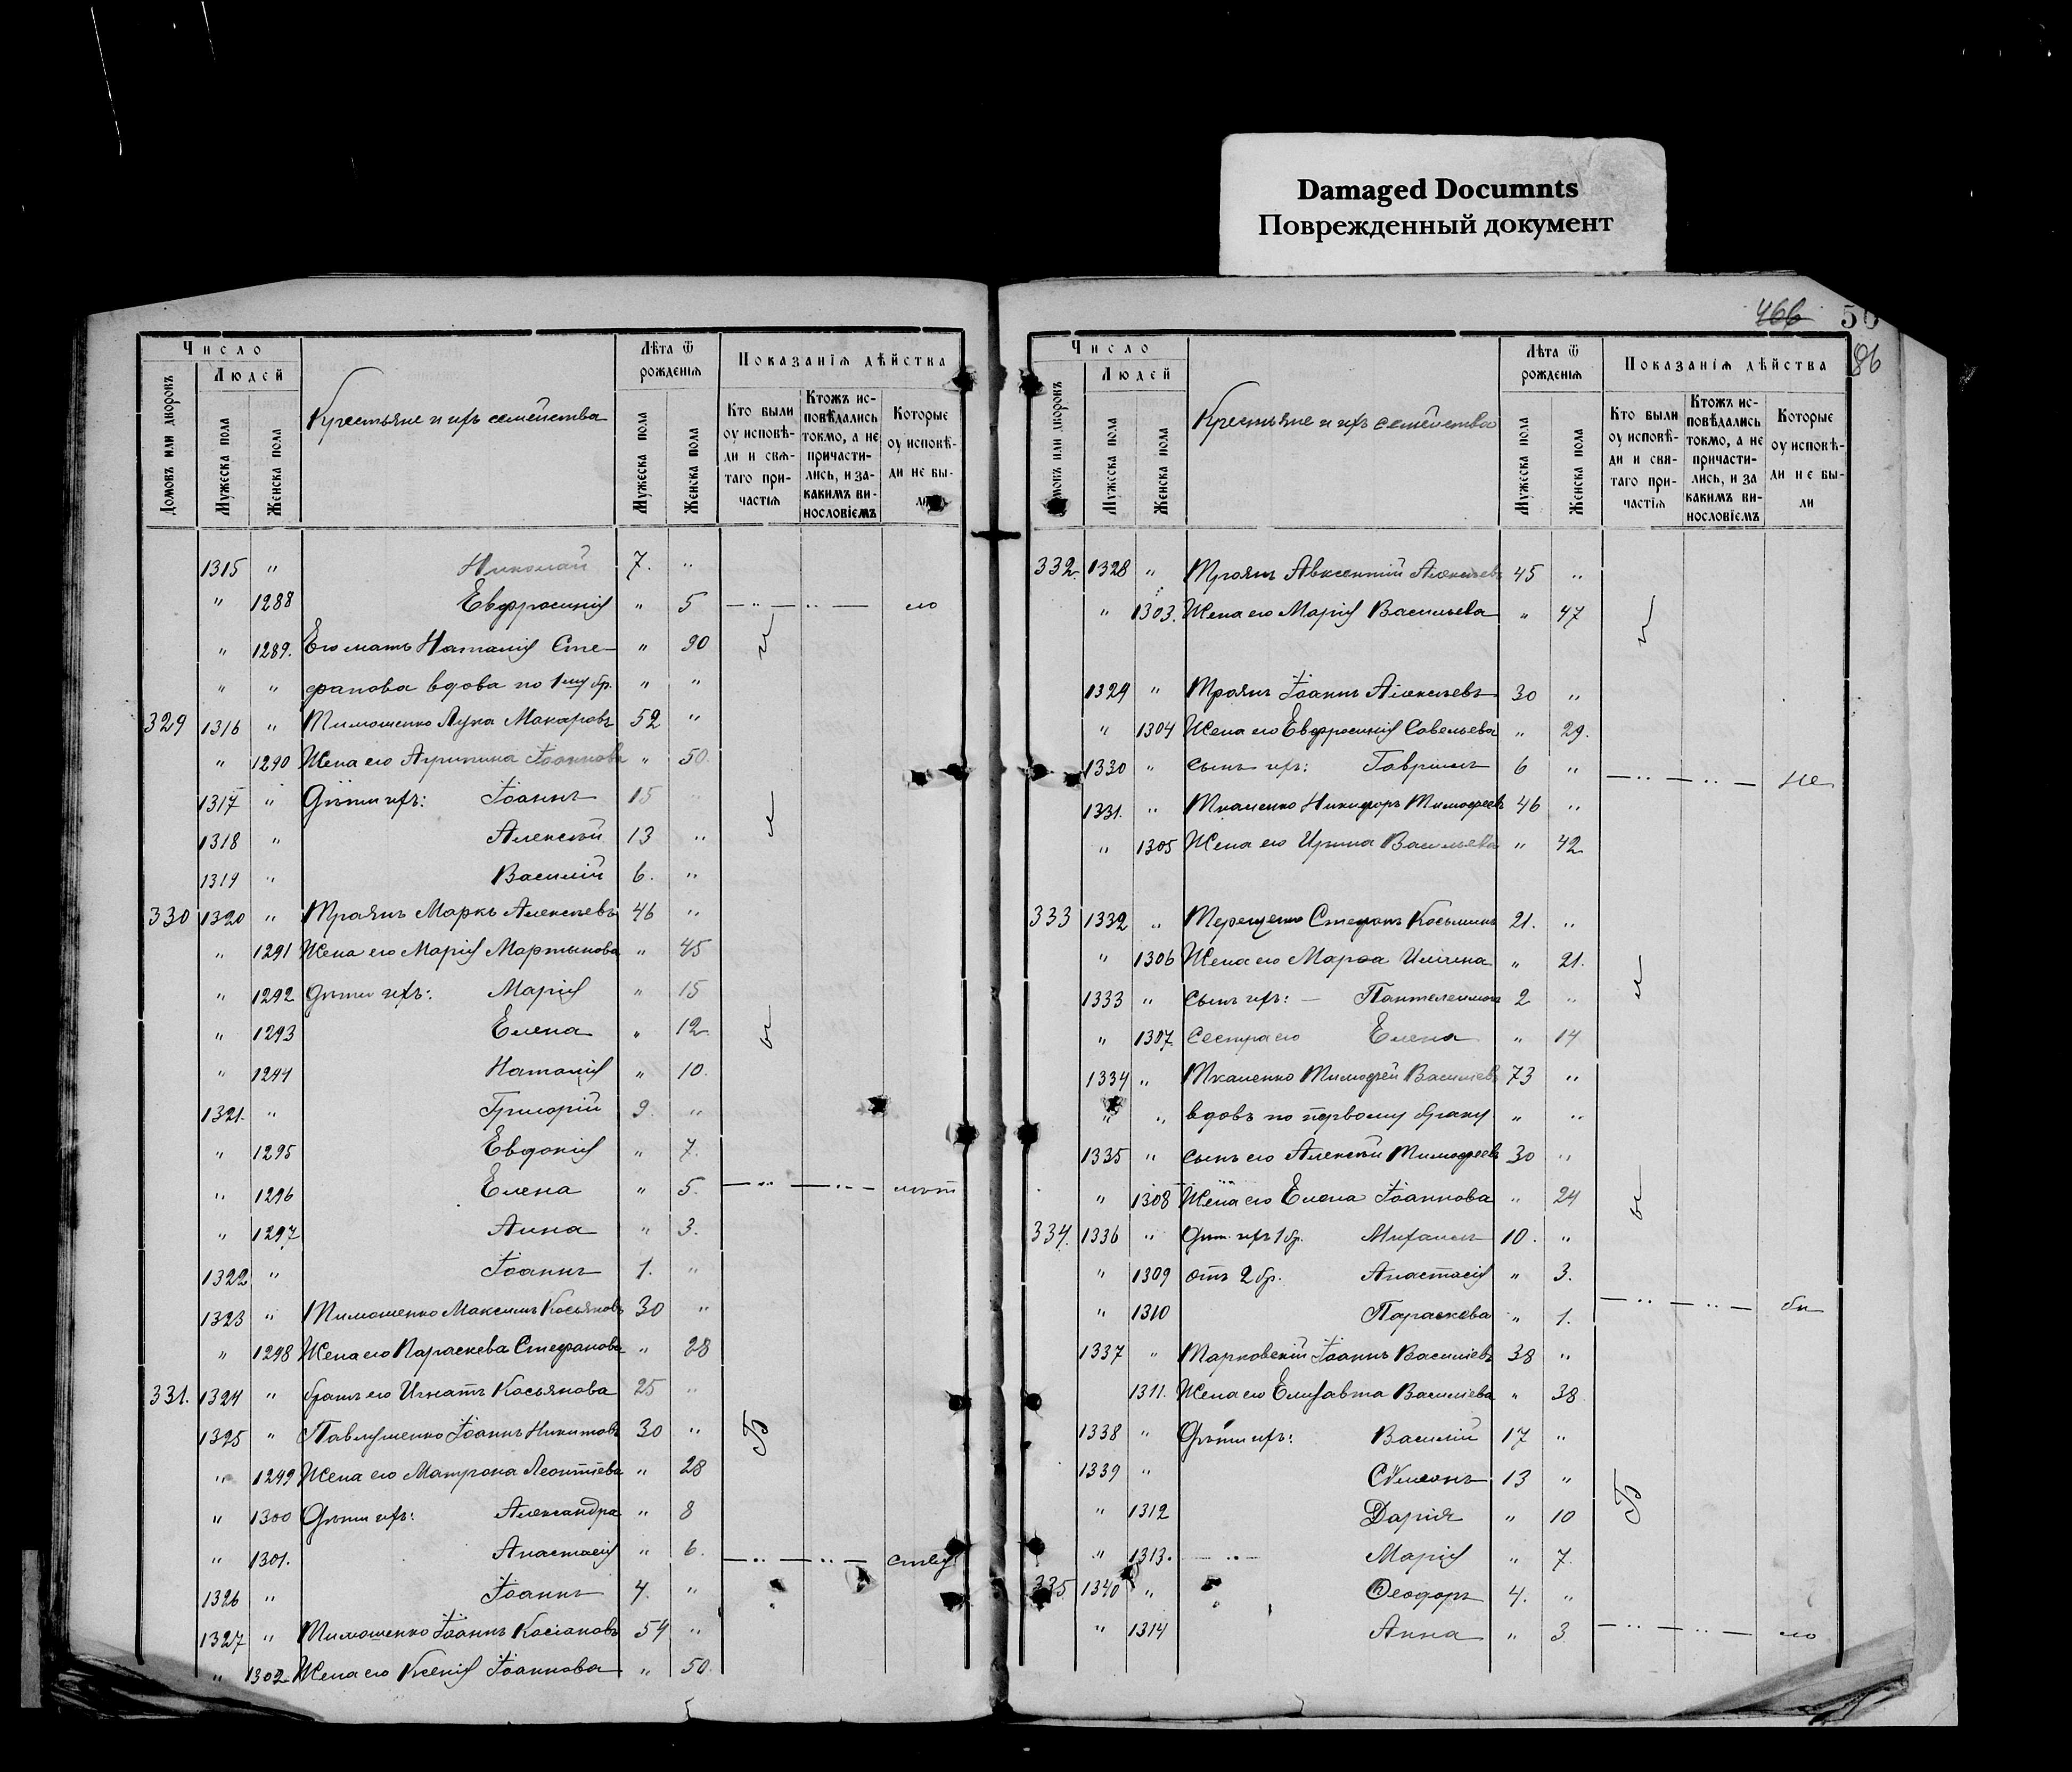 Damaged Documnts
Поврежденный документ
466
50
86
Число
Людей
Домовъ или дворовъ
Мужеска пола
Женска пола
Крестьяне и ихъ семейства
Лѣта ѿ рожденїѧ
Мужеска пола
Женска пола
Показанїѧ дѣйства
Кто были оу исповѣди и свѧтаго причастїѧ
Ктожъ исповѣдались токмо, а не причастились, и за какимъ винословїемъ
Которые оу исповѣди не были
1315 " Николай 7. "
" 1288 Евфросинія " 5 — " — " — ло
" 1289. Его мать Наталія Сте- " 90
" " фанова вдова по 1му бр. " "
329 1316 " Тимошенко Лука Макаровъ 52 "
" 1290 Жена его Агрипина Іоаннова " 50.
1317 " Дѣти ихъ: Іоаннъ 15 "
1318 " Алексѣй 13 "
1319 " Василій 6. "
330 1320 " Троянъ Маркъ Алексѣевъ 46 "
" 1291 Жена его Марія Мартынова " 45
" 1292 Дѣти ихъ: Марія " 15
" 1293 Елена " 12.
" 1294 Наталія " 10.
1321. " Григорій 9. "
" 1295 Евдокія " 7.
" 1296 Елена " 5. — " — " —
" 1297 Анна " 3.
1322 " Іоаннъ 1. "
1323 " Тимошенко Максимъ Косьяновъ 30 "
" 1298 Жена его Параскева Стефанова " 28
331. 1324 " братъ его Игнатъ Косьянова 25 "
1325 " Павлушенко Іоаннъ Никитовъ 30 "
" 1299 Жена его Матрона Леонтіева " 28
" 1300 Дѣти ихъ: Александра " 8
" 1301. Анастасія " 6. — " — " —
1326 " Іоаннъ 4. "
1327 " Тимошенко Іоаннъ Касіановъ 54 "
" 1302 Жена его Ксенія Іоаннова " 50.
Число
Людей
Домовъ или дворовъ
Мужеска пола
Женска пола
Крестьяне и ихъ семейства
Лѣта ѿ рожденїѧ
Мужеска пола
Женска пола
Показанїѧ дѣйства
Кто были оу исповѣди и свѧтаго причастїѧ
Ктожъ исповѣдались токмо, а не причастились, и за какимъ винословїемъ
Которые оу исповѣди не были
332. 1328 " Троянъ Авксентій Алексѣевъ 45 "
" 1303. Жена его Марія Васильева " 47
1329 " Троянъ Іоаннъ Алексѣевъ 30 "
" 1304 Жена его Евфросинія Савельева " 29.
1330 " Сынъ ихъ: Гавріилъ 6 " — " — " — не
1331. " Ткаченко Никифоръ Тимофеевъ 46 "
" 1305 Жена его Ирина Васильева " 42
333 1332 " Терещенко Стефанъ Косьминъ 21. "
" 1306 Жена его Марѳа Ильина " 21.
1333 " Сынъ ихъ: — Пантелеимонъ 2 "
" 1307. Сестра его Елена " 14
1334 " Ткаченко Тимофей Василіевъ 73 "
" " вдовъ по первому браку " "
1335 " Сынъ его Алексѣй Тимофеевъ 30 "
" 1308 Жена его Елена Іоаннова " 24
334. 1336 " Дѣт. ихъ 1 бр. Михаилъ 10. "
" 1309 отъ 2 бр. Анастасія " 3.
" 1310 Параскева " 1. — " — " —
1337 " Тарковскій Іоаннъ Василіевъ 38 "
1311. Жена его Елисавта Василіева " 38
1338 " Дѣти ихъ: Василій 17 "
1339 " Сѵмеонъ 13 "
" 1312 Дарія " 10
" 1313. — " — Марія " 7.
335 1340 " Ѳеодоръ 4. "
" 1314 Анна " 3 — " — " — ло